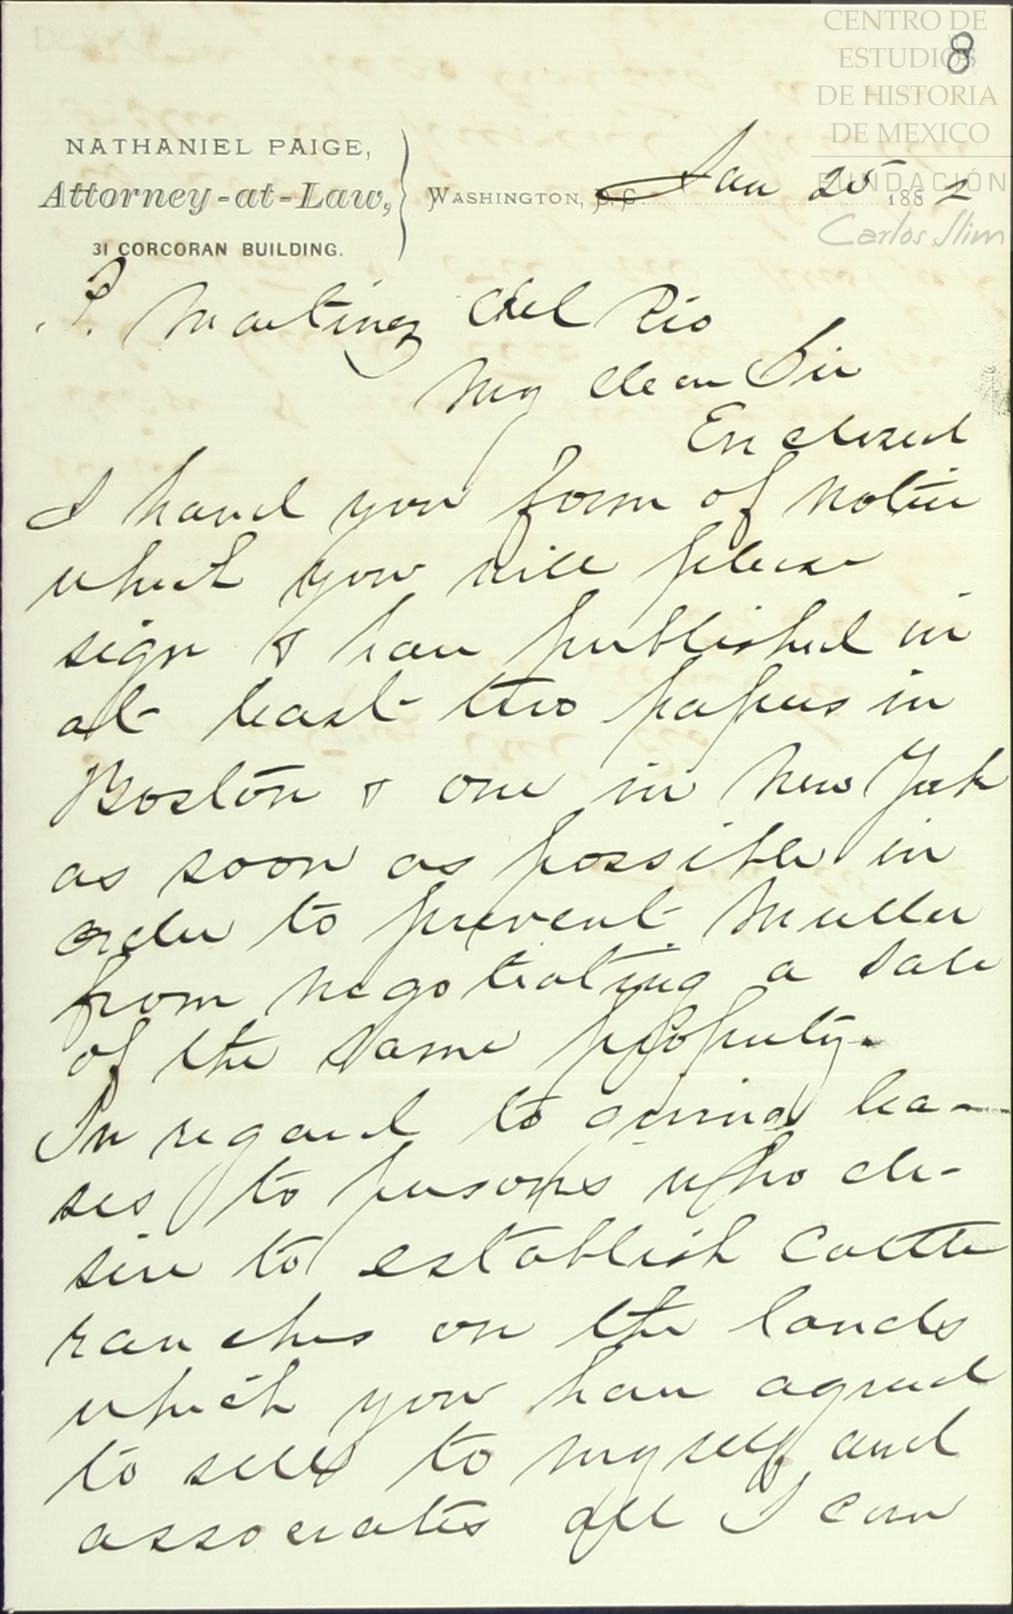 CENTRO DE
ESTUDIOS
DE HISTORIA
DE MEXICO
FUNDACIÓN
Carlos Slim
8
NATHANIEL PAIGE,
Attorney-at-Law,
31 CORCORAN BUILDING.
WASHINGTON, D.C. Jan 25 1882
P. Martinez del Rio
My dear Sir
Enclosed
I hand you form of notice
which you will please
sign & have published in
at least two papers in
Boston & one in New York
as soon as possible in
order to prevent Muller
from negotiating a sale
of the same property.
In regard to giving lea-
ses to persons who de-
sire to establish cattle
ranches on the lands
which you have agreed
to sell to myself and
associates all I can